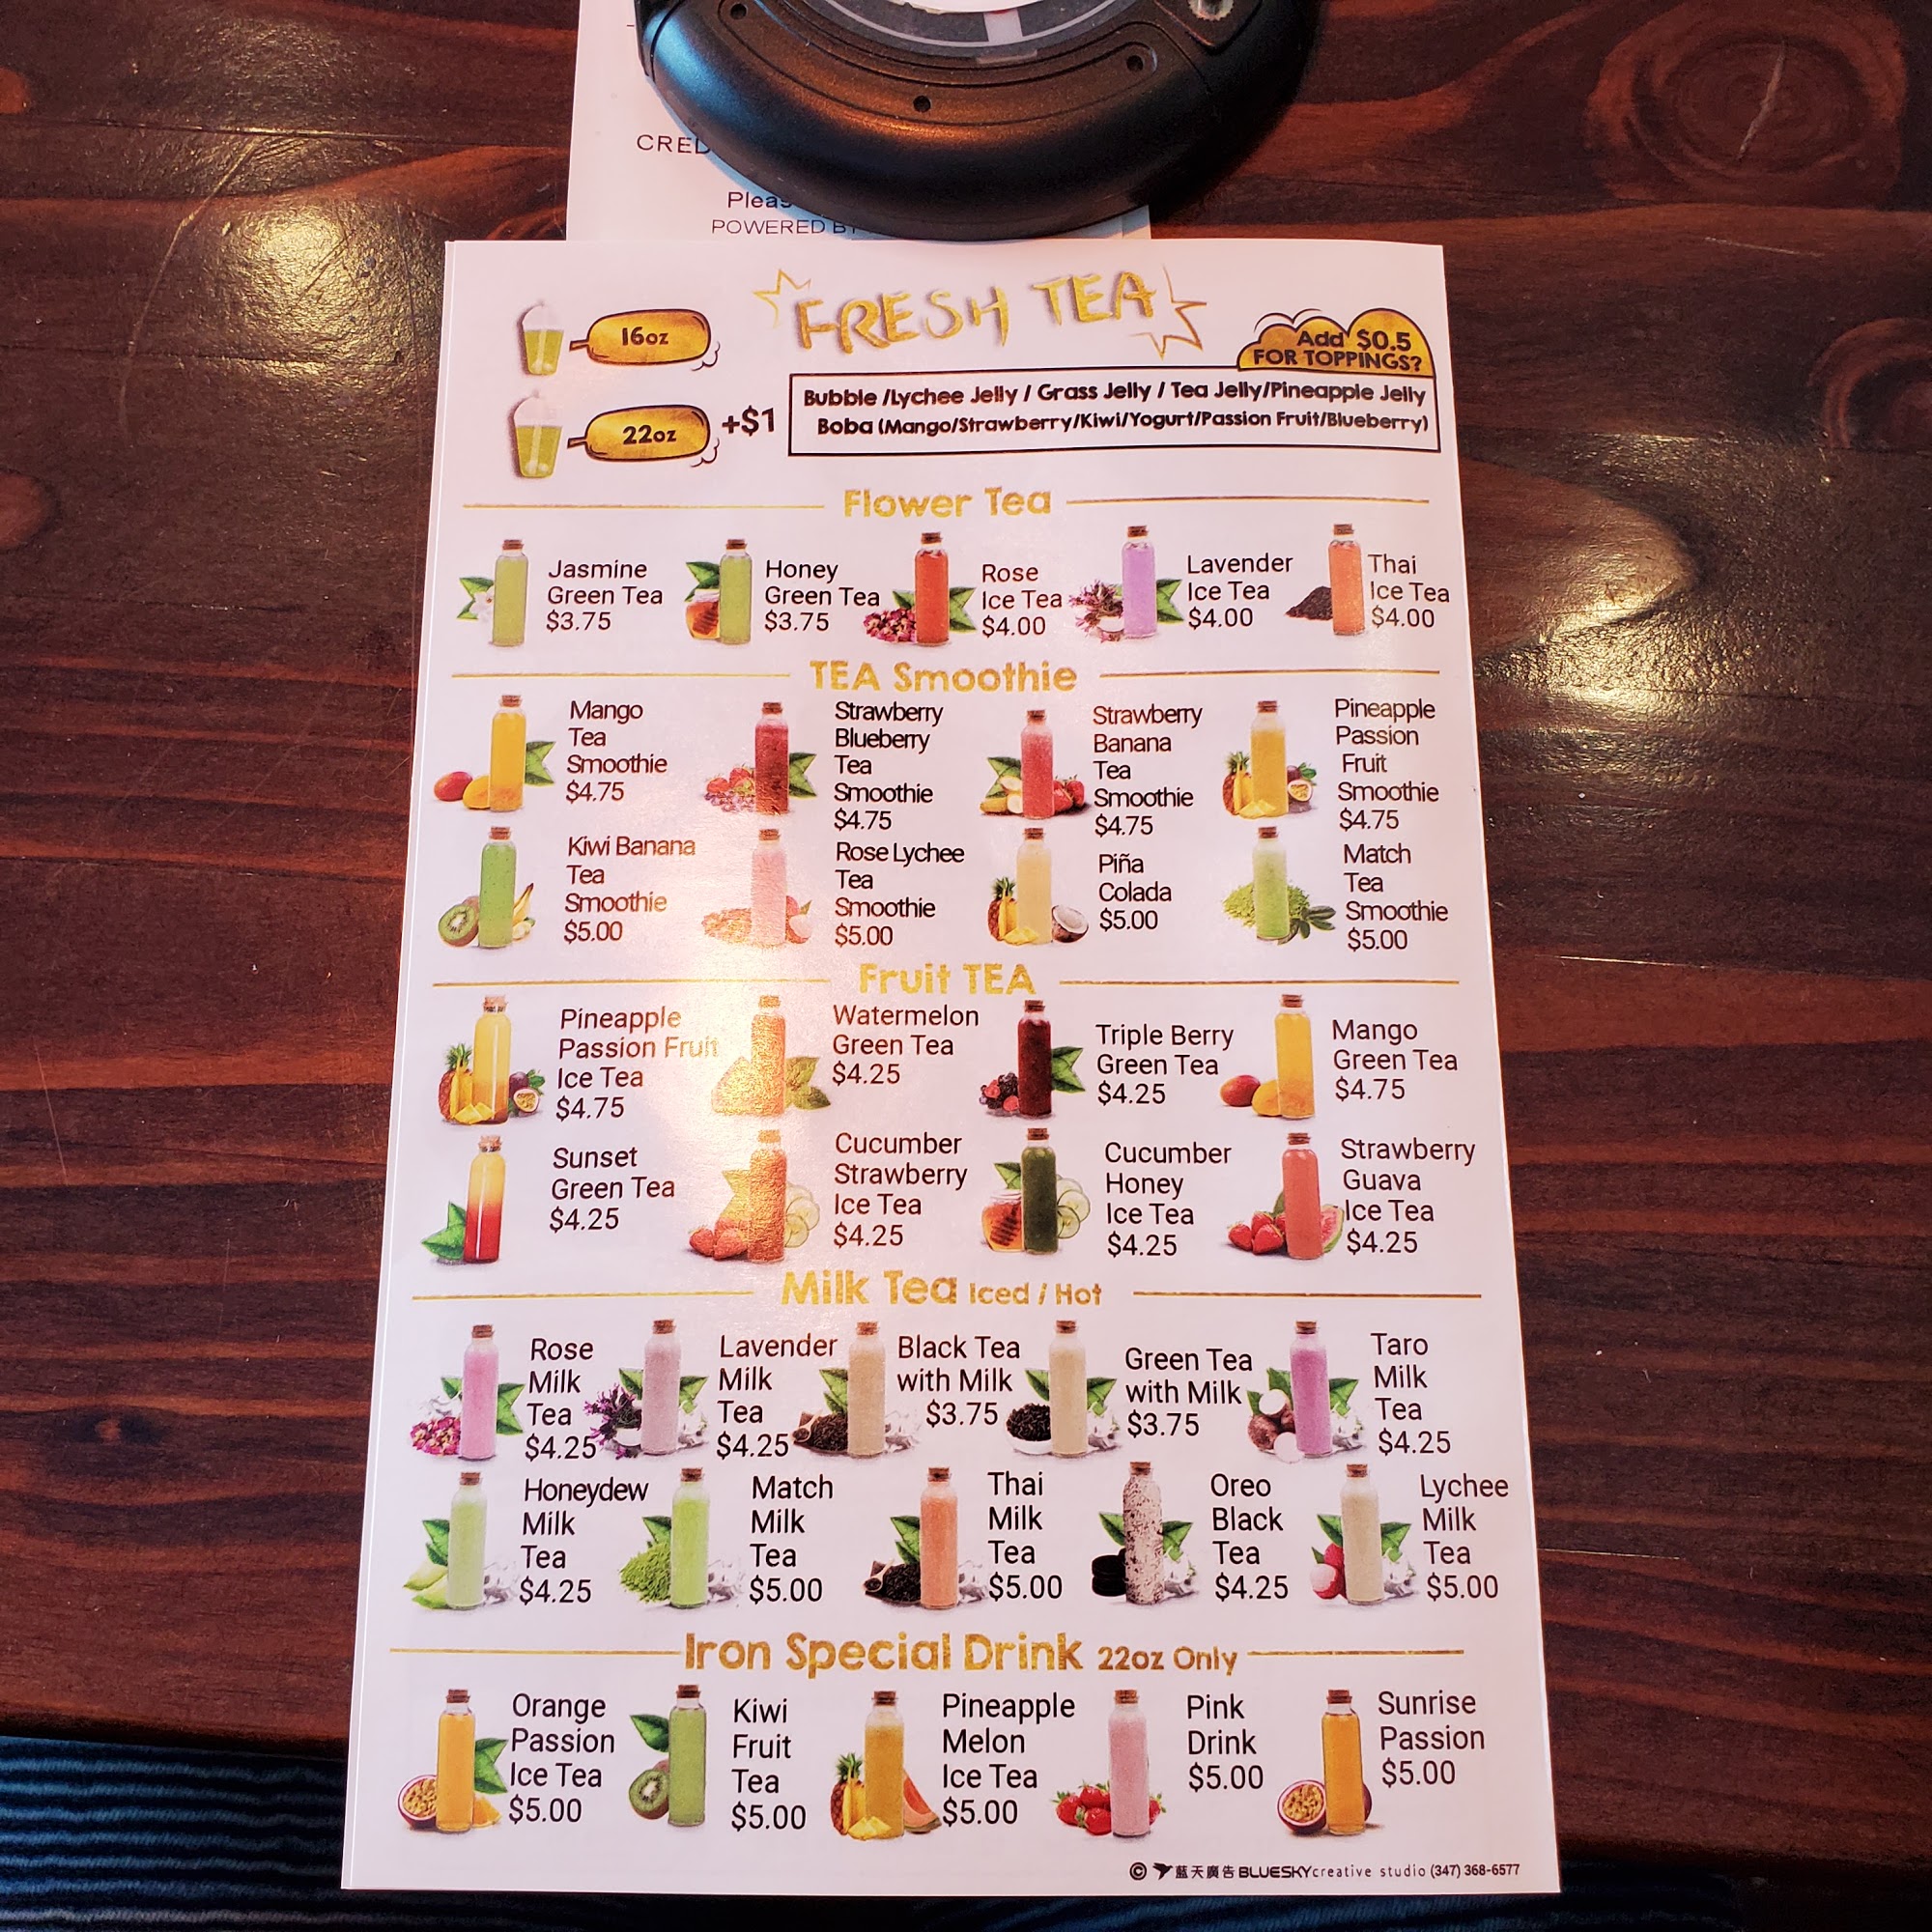 CRED
Pleas
POWERED BY
FRESH TEA
16oz
22oz
+$1
Add $0.5
FOR TOPPINGS?
Bubble /Lychee Jelly / Grass Jelly / Tea Jelly/Pineapple Jelly
Boba (Mango/Strawberry/Kiwi/Yogurt/Passion Fruit/Blueberry)
Flower Tea
Jasmine
Green Tea
$3.75
Honey
Green Tea
$3.75
Rose
Ice Tea
$4.00
Lavender
Ice Tea
$4.00
Thai
Ice Tea
$4.00
TEA Smoothie
Mango
Tea
Smoothie
$4.75
Strawberry
Blueberry
Tea
Smoothie
$4.75
Strawberry
Banana
Tea
Smoothie
$4.75
Pineapple
Passion
Fruit
Smoothie
$4.75
Kiwi Banana
Tea
Smoothie
$5.00
Rose Lychee
Tea
Smoothie
$5.00
Piña
Colada
$5.00
Match
Tea
Smoothie
$5.00
Fruit TEA
Pineapple
Passion Fruit
Ice Tea
$4.75
Watermelon
Green Tea
$4.25
Triple Berry
Green Tea
$4.25
Mango
Green Tea
$4.75
Sunset
Green Tea
$4.25
Cucumber
Strawberry
Ice Tea
$4.25
Cucumber
Honey
Ice Tea
$4.25
Strawberry
Guava
Ice Tea
$4.25
Milk Tea Iced / Hot
Rose
Milk
Tea
$4.25
Lavender
Milk
Tea
$4.25
Black Tea
with Milk
$3.75
Green Tea
with Milk
$3.75
Taro
Milk
Tea
$4.25
Honeydew
Milk
Tea
$4.25
Match
Milk
Tea
$5.00
Thai
Milk
Tea
$5.00
Oreo
Black
Tea
$4.25
Lychee
Milk
Tea
$5.00
Iron Special Drink 22oz Only
Orange
Passion
Ice Tea
$5.00
Kiwi
Fruit
Tea
$5.00
Pineapple
Melon
Ice Tea
$5.00
Pink
Drink
$5.00
Sunrise
Passion
$5.00
© 藍天廣告 BLUESKYcreative studio (347) 368-6577